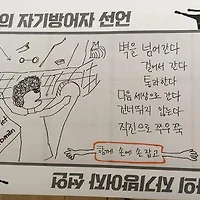 의 자기방어자 선언
벽을 넘어간다
걸어서 간다
통과한다
다음 세상으로 간다
건너뛰지 않는다
직진으로 쭈우욱
함께 손에 손 잡고
나의 자기방어자 선언